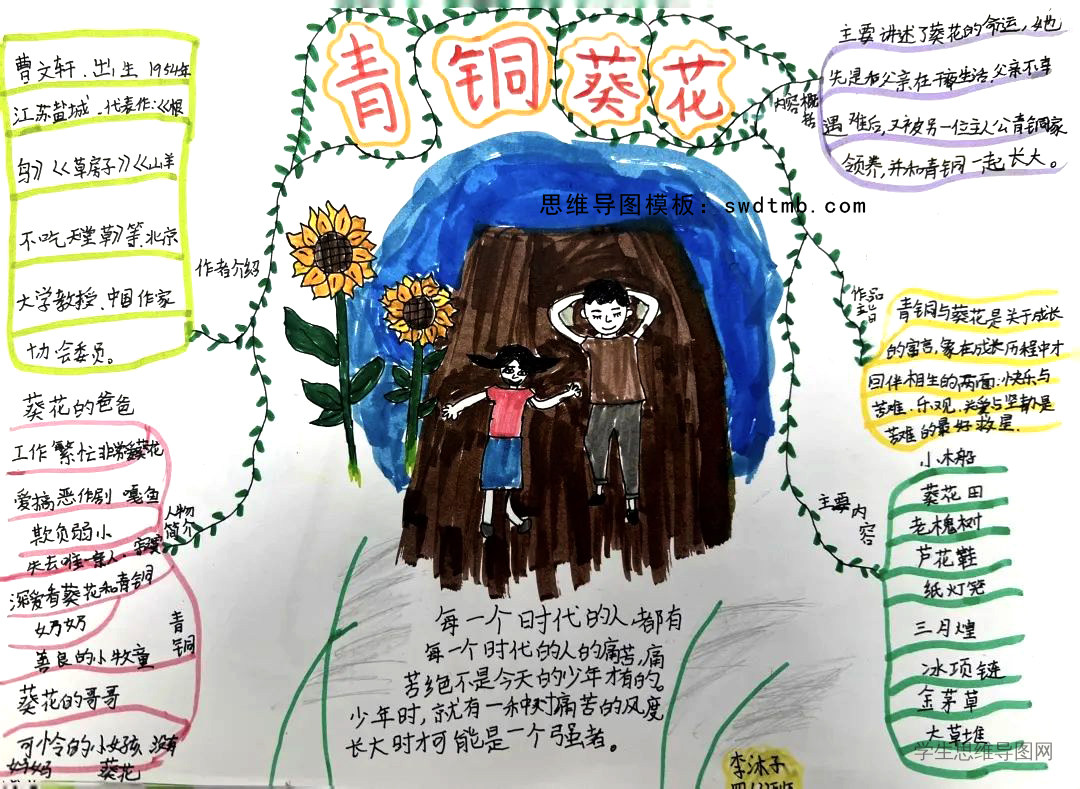 青铜葵花
曹文轩.出生 1954年
江苏盐城.代表作:《根
鸟》《草房子》《山羊
不吃天堂草》等.北京
大学教授、中国作家
协会委员。
作者介绍
主要讲述了葵花的命运,她
先是和父亲在干校生活,父亲不幸
遇难后,又被另一位主人公青铜家
领养,并和青铜一起长大。
内容概括
思维导图模板：swdtmb.com
作品主旨
青铜与葵花是关于成长
的寓言,象在成长历程中才
回伴相生的两面:快乐与
苦难.乐观.关爱与坚韧是
苦难的最好救星.
葵花的爸爸
工作繁忙非常爱葵花
爱搞恶作剧 嘎鱼
欺负弱小
失去唯一亲人.寂寞
深爱着葵花和青铜
奶奶
善良的小牧童
青铜
葵花的哥哥
可怜的小女孩 没有
妈妈 葵花
人物简介
主要内容
小木船
葵花田
老槐树
芦花鞋
纸灯笼
三月煌
冰项链
金茅草
大草垛
每一个时代的人,都有
每一个时代的人的痛苦,痛
苦绝不是今天的少年才有的。
少年时,就有一种对痛苦的风度
长大时才可能是一个强者。
李沐子
学生思维导图网